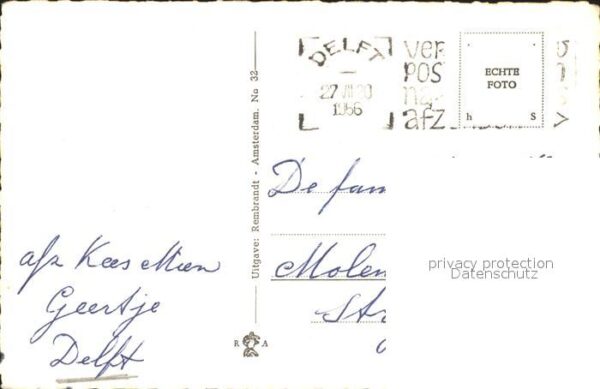 DELFT
27 VII 20
1966
ver
POS
na
afz
ECHTE
FOTO
h S
Uitgave: Rembrandt - Amsterdam. No 32
De fam
Molen
Str
afz Kees Mien
Geertje
Delft
R A
privacy protection
Datenschutz